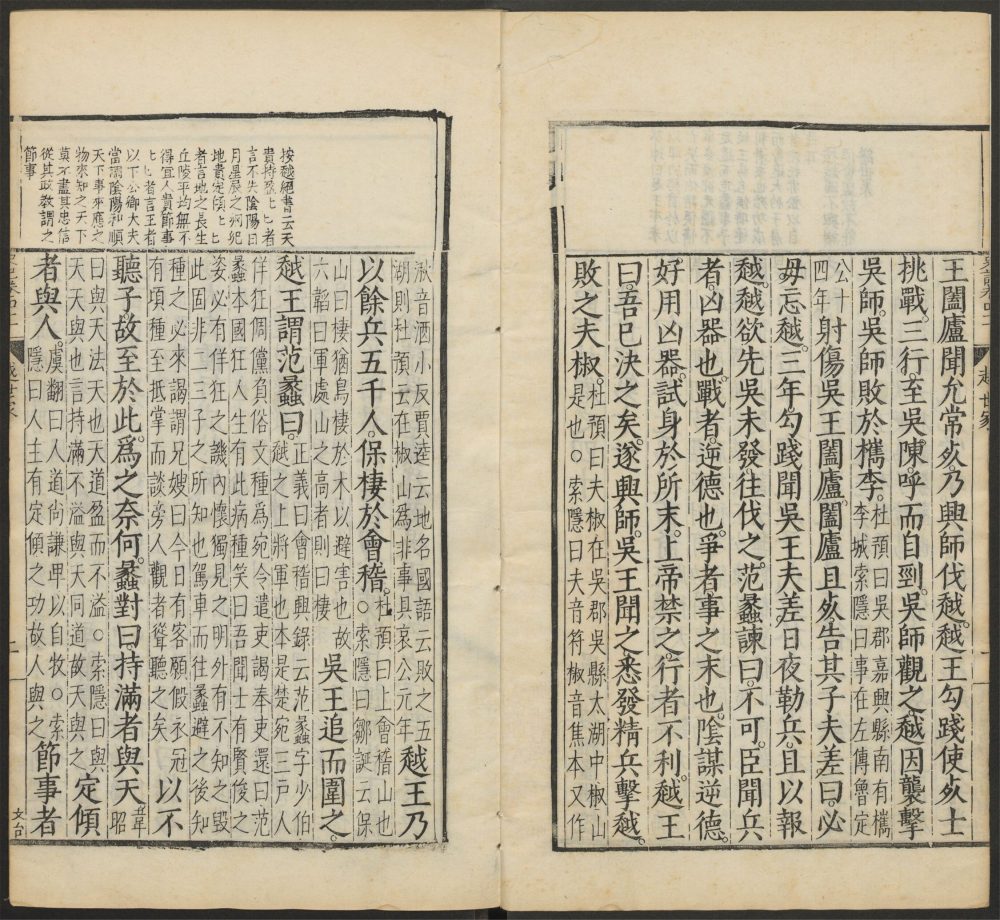 王闔廬聞允常死乃興師伐越。越王勾踐使死士
挑戰。三行至吳陳。呼而自剄。吳師觀之。越因襲擊
吳師。吳師敗於檇李。杜預曰吳郡嘉興縣南有檇
李城索隱曰事在左傳魯定
公十
四年射傷吳王闔廬。闔廬且死。告其子夫差曰。必
毋忘越。三年。勾踐聞吳王夫差日夜勒兵。且以報
越。越欲先吳未發。往伐之。范蠡諫曰。不可。臣聞兵
者。凶器也。戰者。逆德也。爭者事之末也。陰謀逆德。
好用凶器。試身於所末。上帝禁之。行者不利。越王
曰。吾已決之矣。遂興師。吳王聞之。悉發精兵擊越。
敗之夫椒。杜預曰夫椒在吳郡吳縣太湖中椒山
是也○索隱曰夫音符椒音焦本又作
越世家
按越絕書云天
貴持盈匕匕者
言不失陰陽日
月星辰之綱紀
地貴定傾匕匕
者言地之長生
丘陵平均無不
得宜人貴節事
匕匕者言王者
以下公卿大夫
當調陰陽和順
天下事來應之
物來知之天下
莫不盡其忠信
從其政教謂之
節事
湫音酒小反賈逵云地名國語云敗之五
湖則杜預云在椒山爲非事具哀公元年越王乃
以餘兵五千人。保棲於會稽。杜預曰上會稽山也
○索隱曰鄒誕云保
山曰棲猶鳥棲於木以避害也故
六韜曰軍處山之高者則曰棲吳王追而圍之。
越王謂范蠡曰。正義曰會稽典錄云范蠡字少伯
越之上將軍也本是楚宛三戶人
佯狂倜儻負俗文種爲宛令遣吏謁奉吏還曰范
蠡本國狂人生有此病種笑曰吾聞士有賢俊之
姿必有佯狂之譏內懷獨見之明外有不知之毀
此固非二三子之所知也駕車而往蠡避之後知
種之必來謁謂兄嫂曰今日有客願假衣冠
有頃種至抵掌而談旁人觀者聳聽之矣以不
聽子。故至於此。爲之奈何。蠡對曰。持滿者與天韋
昭
曰與天法天也天道盈而不溢○索隱曰與
天天與也言持滿不溢與天同道故天與之定傾
者與人。虞翻曰人道尚謙卑以自牧○索
隱曰人主有定傾之功故人與之節事者